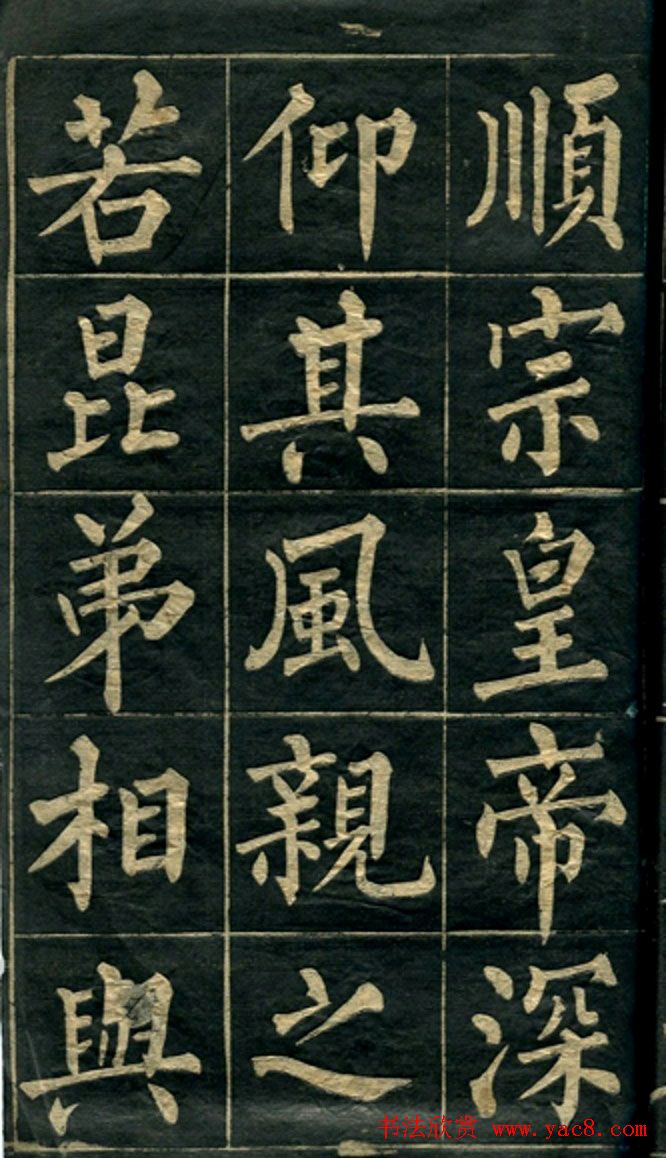 順宗皇帝深
仰其風親之
若昆弟相與
书法欣赏 www.yac8.com